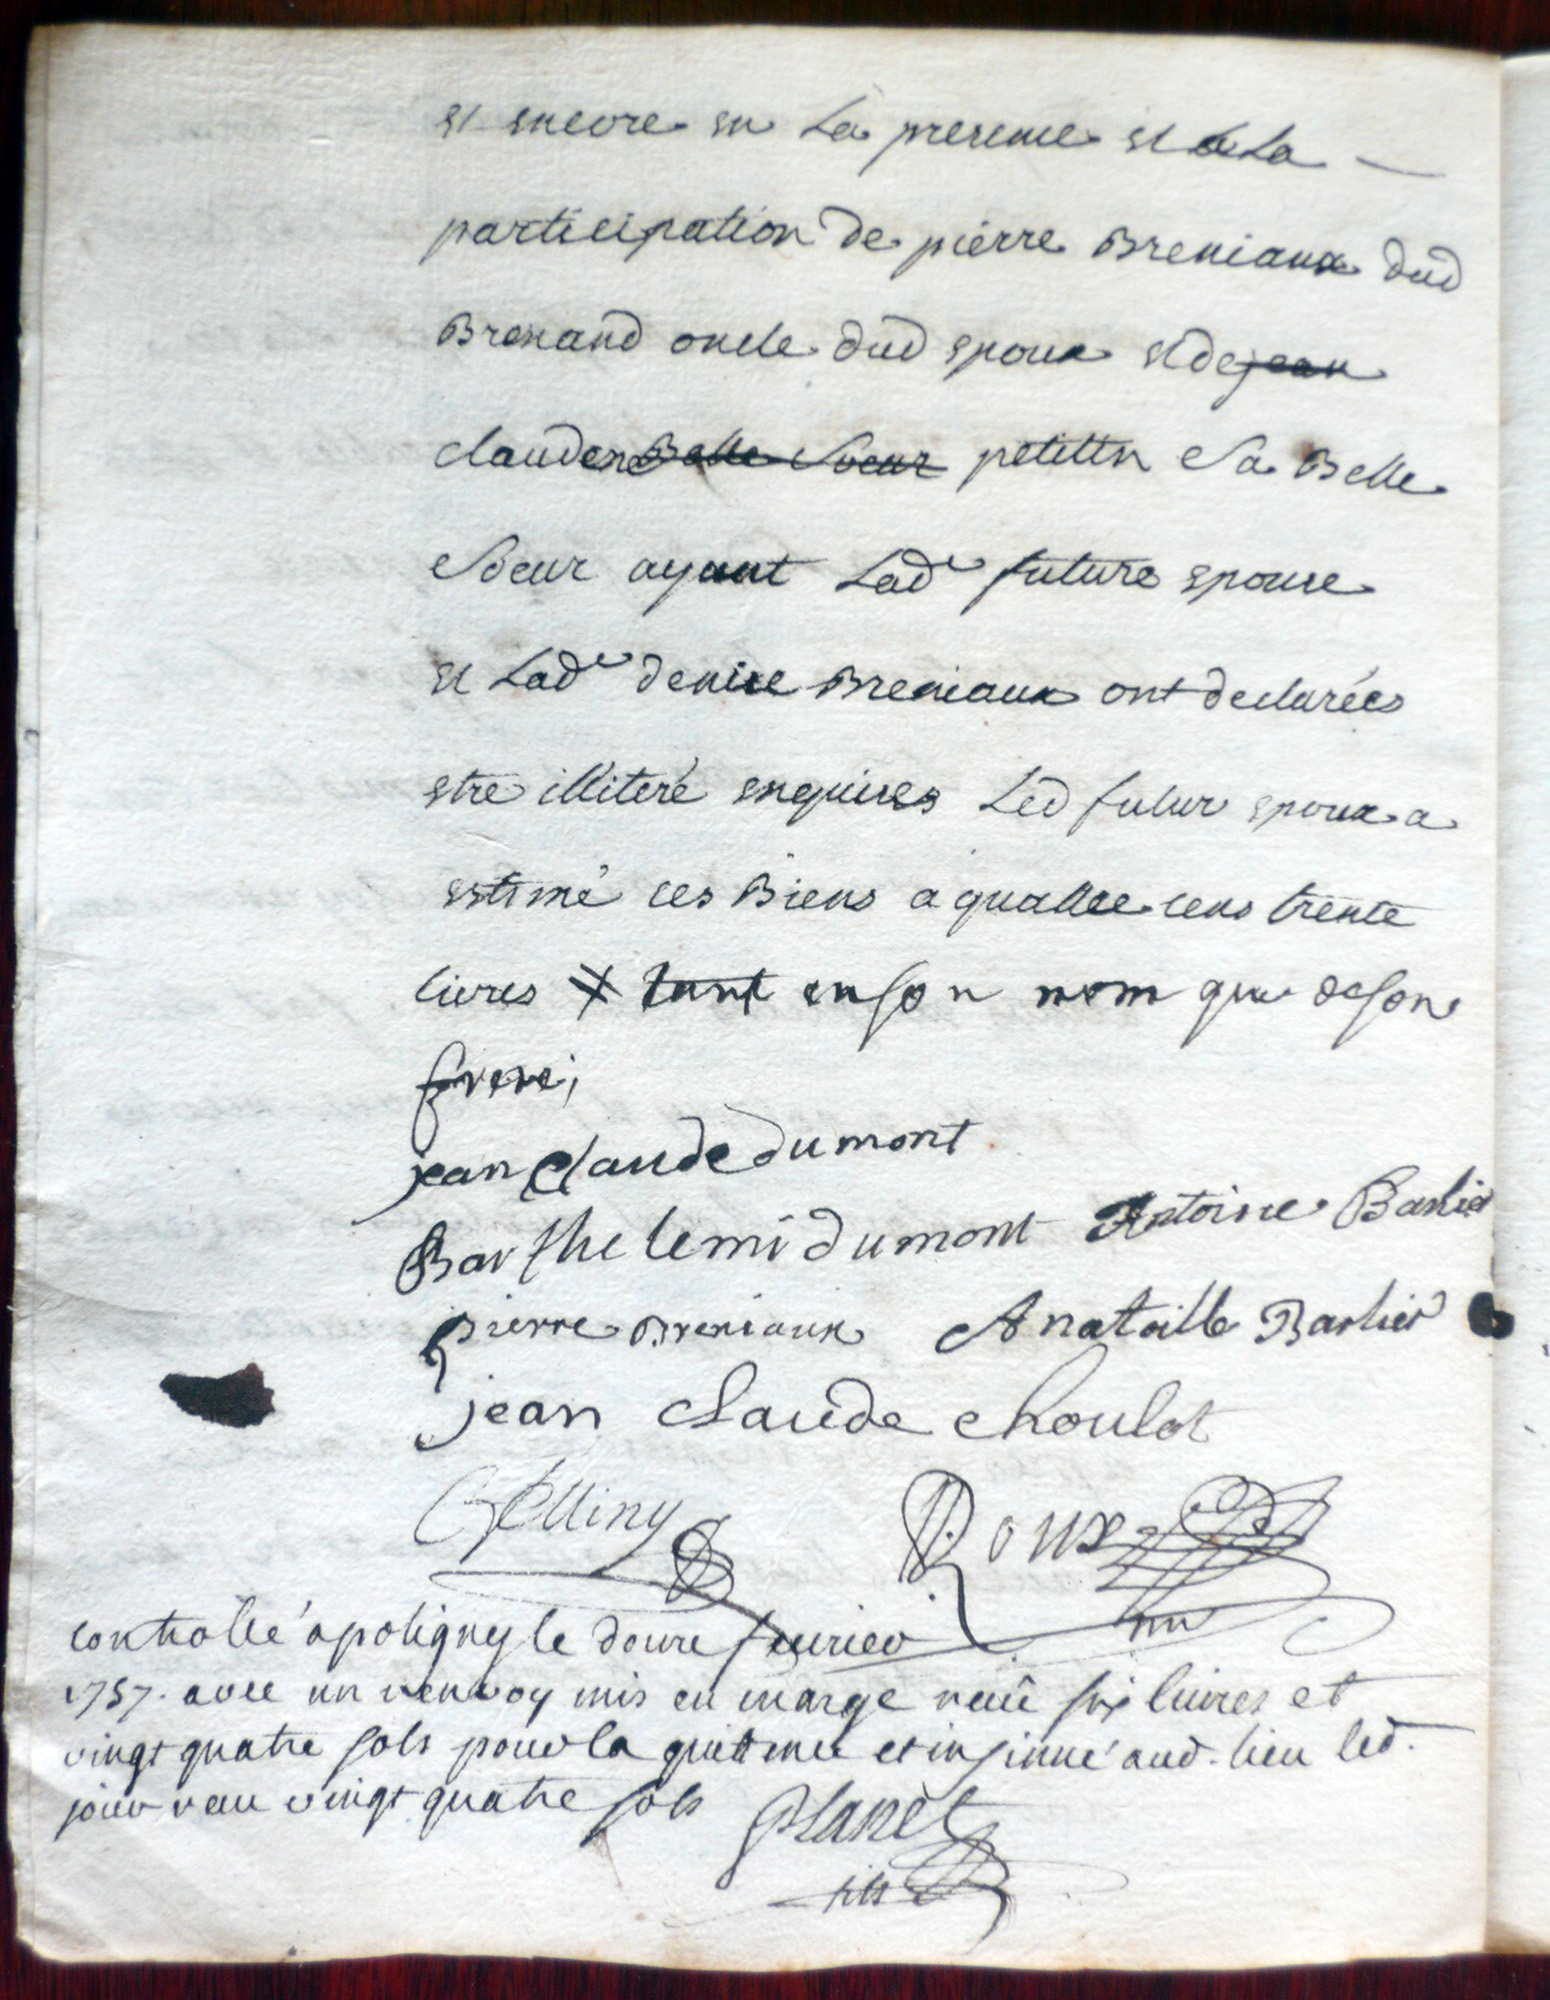 et encore en La presence et a La
participation de pierre Breniaux dud
Brenand oncle dud epoux et de jean
claudene Belle Soeur petittin Sa Belle
Soeur ayant Lade future epouse
et Lade denise Breniaux ont declarées
etre illiteré enquises Led futur epoux a
estimé ces Biens a quattre cens trente
livres tant en son nom que de son
frere;
jean claude dumont
Barthelemi dumont Antoine Barlier
pierre Breniaux Anatoille Barlier
jean claude choulot
Roux
controllé a poligny le douze feurier
1757. avec un renvoy mis en marge receu six livres et
vingt quatre sols pour la quittance et insinué aud. lieu led.
jour receu vingt quatre sols
fils